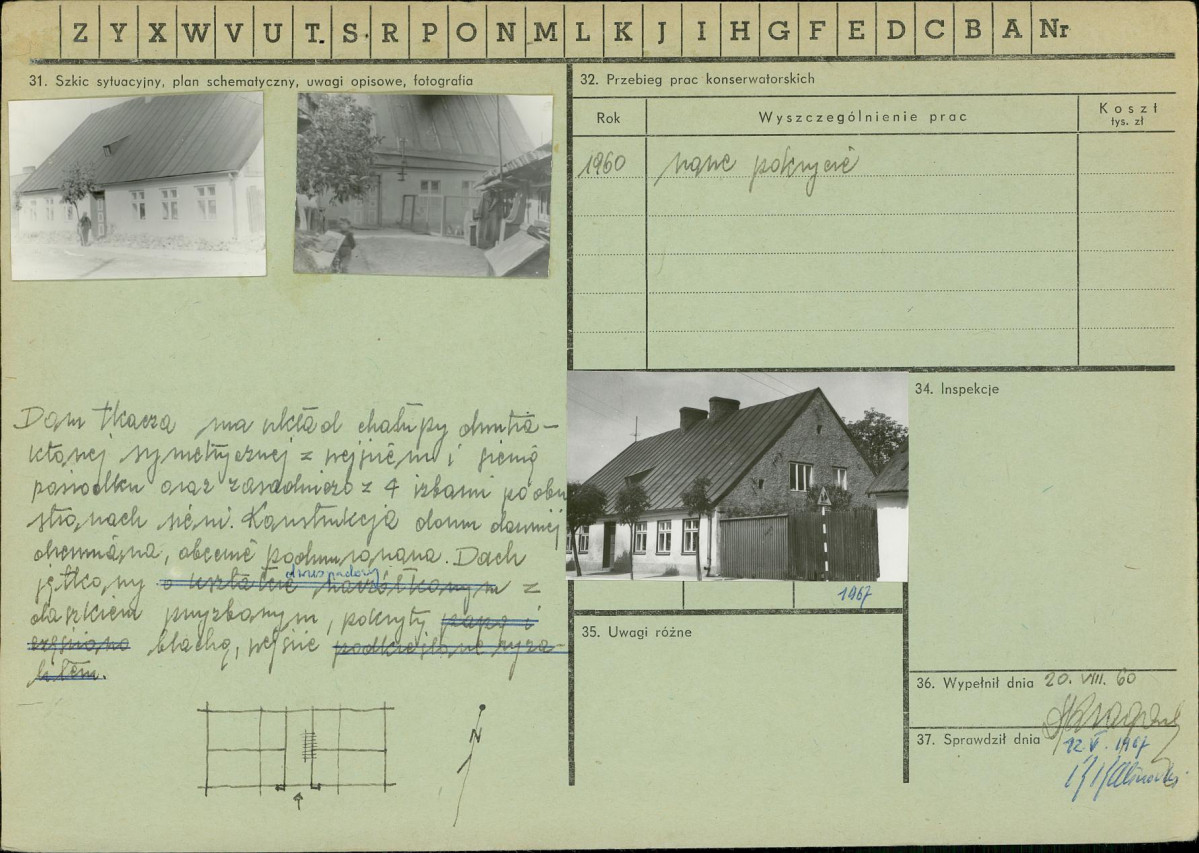 Z Y X W V U T. S. R P O N M L K J I H G F E D C B A Nr
31. Szkic sytuacyjny, plan schematyczny, uwagi opisowe, fotografia
32. Przebieg prac konserwatorskich
Rok
Wyszczególnienie prac
Koszt
tys. zł
1960 nowe pokrycie
Dom tkacza ma układ chałupy dwutra-
ktowej symetrycznej z wejściem i sienią
pośrodku oraz zasadniczo z 4 izbami po obu
stronach sieni. Konstrukcja domu dawniej
drewniana, obecnie podmurowana. Dach
jętkowy o kształcie dwuspadowy z
daszkiem przyzbowym, pokryty papą i
blachą, wejście
N
34. Inspekcje
1967
35. Uwagi różne
36. Wypełnił dnia 20. VIII. 60
37. Sprawdził dnia
12 V. 1967